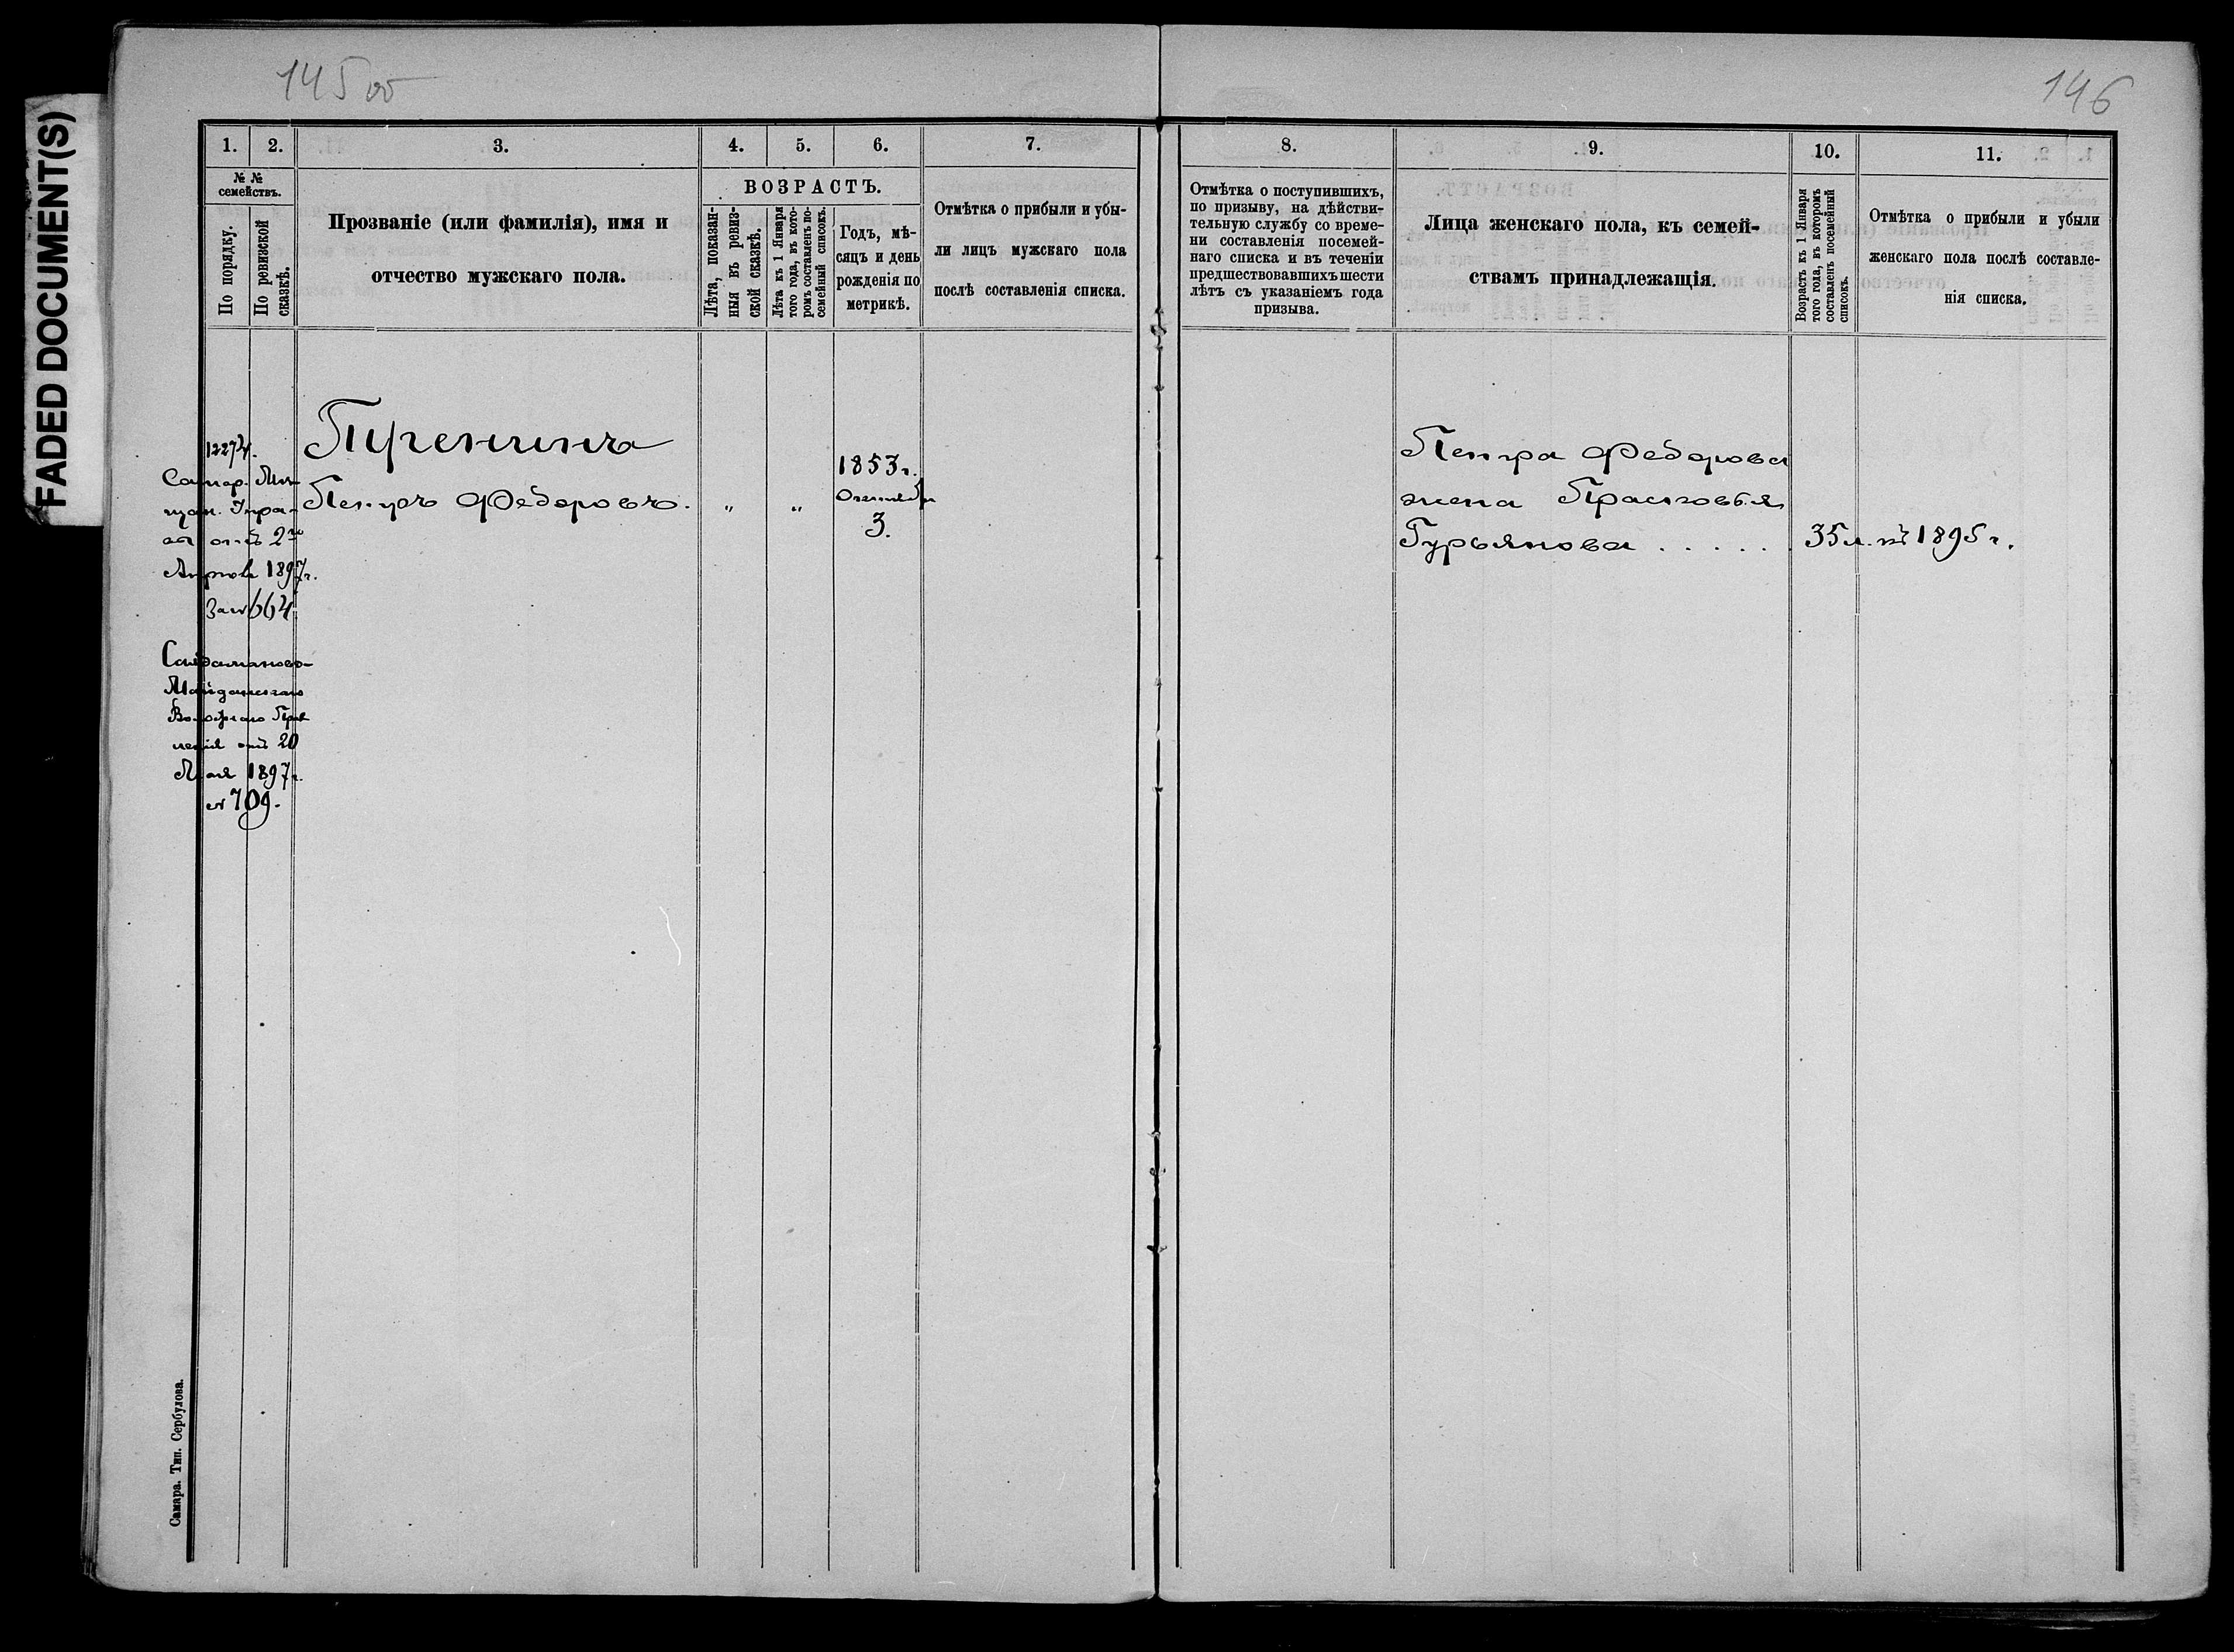 FADED DOCUMENT(S)
145 об
146
1. 2. 3. 4. 5. 6. 7.
№ №
семействъ.
По порядку.
По ревизской
сказкѣ.
Прозваніе (или фамилія), имя и
отчество мужскаго пола.
ВОЗРАСТЪ.
Лѣта, показан-
ныя въ ревиз-
ской сказкѣ.
Лѣта къ 1 Января
того года, въ кото-
ромъ составленъ по-
семейный списокъ.
Годъ, мѣ-
сяцъ и день
рожденія по
метрикѣ.
Отмѣтка о прибыли и убы-
ли лицъ мужскаго пола
послѣ составленія списка.
12274.
Самар. Мѣ-
щан. Упра-
вы отъ 2го
Апрѣля 1897г.
за № 664
Майданскаго
Волостного Прав
ленія отъ 20
Мая 1897г.
№ 709.
Тренинъ
Петръ Федоровъ. „ „
1853г.
Октября
3.
Самара. Тип. Сербулова.
8. 9. 10. 11.
Отмѣтка о поступившихъ,
по призыву, на дѣйстви-
тельную службу со време-
ни составленія посемей-
наго списка и въ теченіи
предшествовавшихъ шести
лѣтъ съ указаніемъ года
призыва.
Лица женскаго пола, къ семей-
ствамъ принадлежащія.
Возрастъ къ 1 Января
того года, въ которомъ
составленъ посемейный
списокъ.
Отмѣтка о прибыли и убыли
женскаго пола послѣ составле-
нія списка.
Петра Федорова
жена Прасковья
Гурьянова . . . . . . 35 л. въ 1895 г.